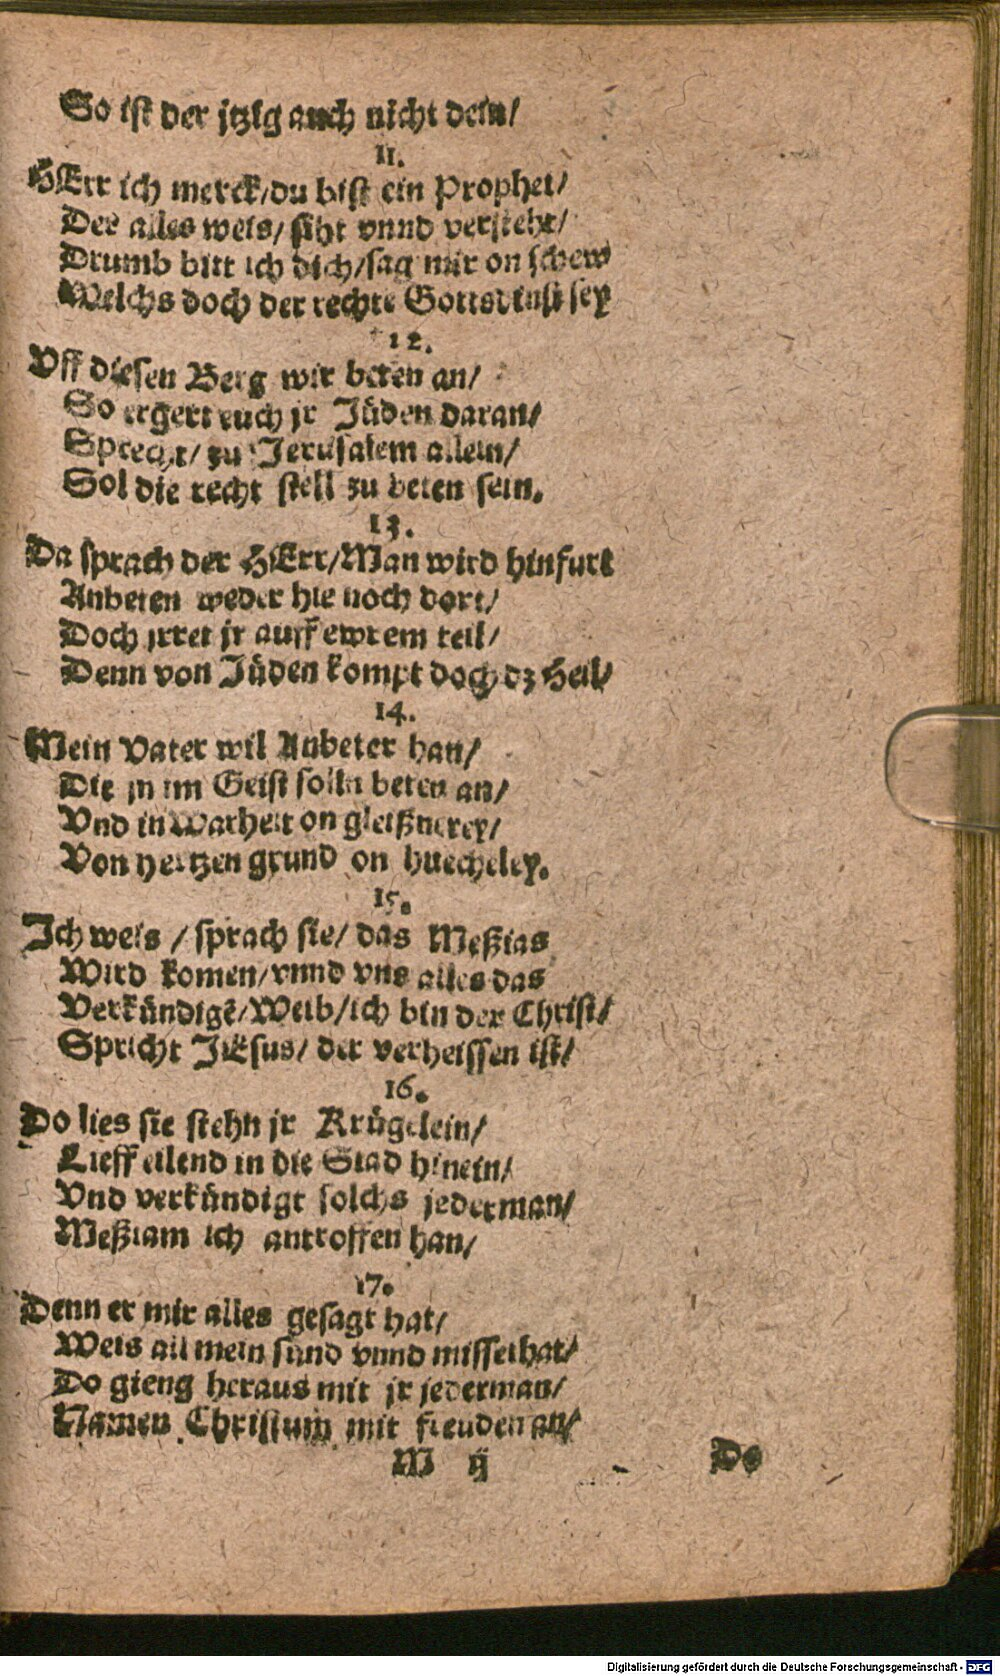 So ist der jtzig auch nicht dein/
11.
HErr ich merck/du bist ein Prophet/
Der alles weis/ siht vnnd versteht/
Drumb bitt ich dich/sag mir on schew
Welchs doch der rechte Gottsdinst sey
12.
Vff diesen Berg wir beten an/
So ergert euch jr Jüden daran/
Sprecht/ zu Jerusalem allein/
Sol die recht stell zu beten sein.
13.
Da sprach der HErr/Man wird hinfurt
Anbeten weder hie noch dort/
Doch jrret jr auff ewrem teil/
Denn von Jüden kompt doch dz Heil/
14.
Mein Vater wil Anbeter han/
Die jn im Geist solln beten an/
Vnd in Warheit on gleißnerey/
Von hertzen grund on huecheley.
15.
Ich weis / sprach sie/ das Meßias
Wird komen/vnnd vns alles das
Verkündigẽ/Weib/ich bin der Christ/
Spricht JEsus/ der verheissen ist/
16.
Do lies sie stehn jr Krügelein/
Lieff eilend in die Stad hinein/
Vnd verkündigt solchs jederman/
Meßiam ich antroffen han/
17.
Denn er mir alles gesagt hat/
Weis all mein sünd vnnd missethat/
Do gieng heraus mit jr jederman/
Namen Christum mit freuden an/
M ij Do
Digitalisierung gefördert durch die Deutsche Forschungsgemeinschaft - DFG